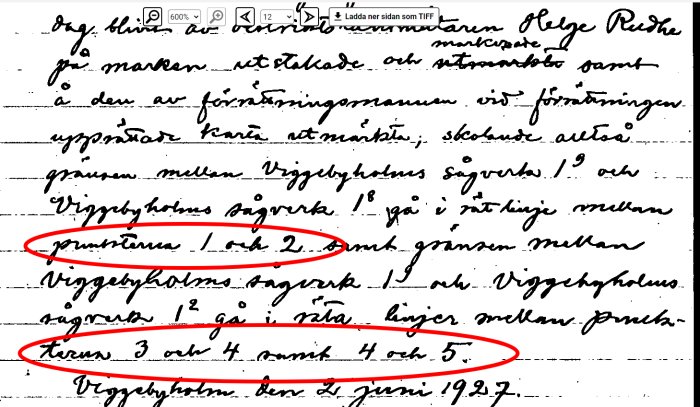 600%
12
Ladda ner sidan som TIFF
dag blivit av distriktslantmätaren Helge Rudhe
markerade
på marken utstakade och utmärkta samt
å den av förrättningsmannen vid förrättningen
upprättade karta utmärkta; skolande alltså
gränsen mellan Viggebyholms sågverk 1⁹ och
Viggebyholms sågverk 1⁸ gå i rät linje mellan
punkterna 1 och 2 samt gränsen mellan
Viggebyholms sågverk 1⁹ och Viggebyholms
sågverk 1² gå i räta linjer mellan punk-
terna 3 och 4 samt 4 och 5.
Viggebyholm den 2 juni 1927.